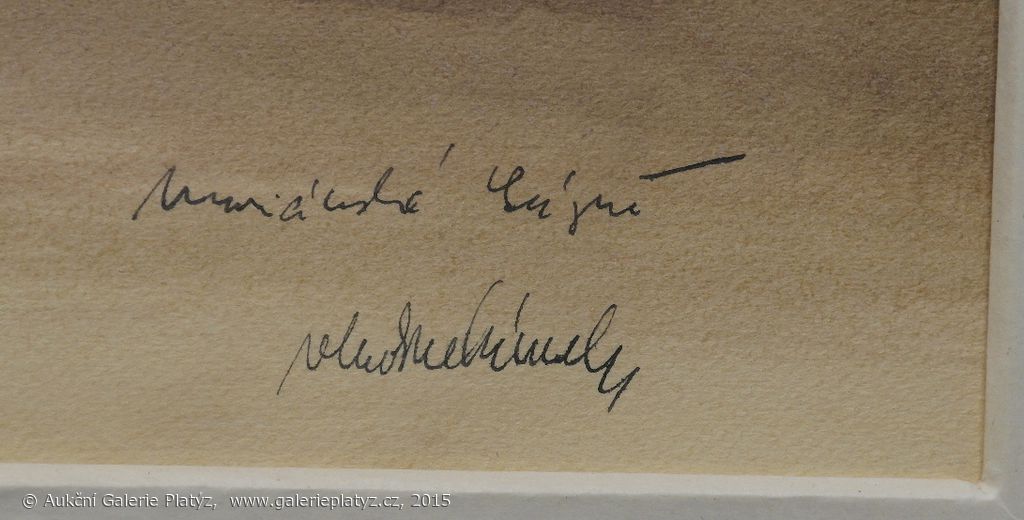 Mariánské Lázně
© Aukční Galerie Platýz, www.galerieplatyz.cz, 2015